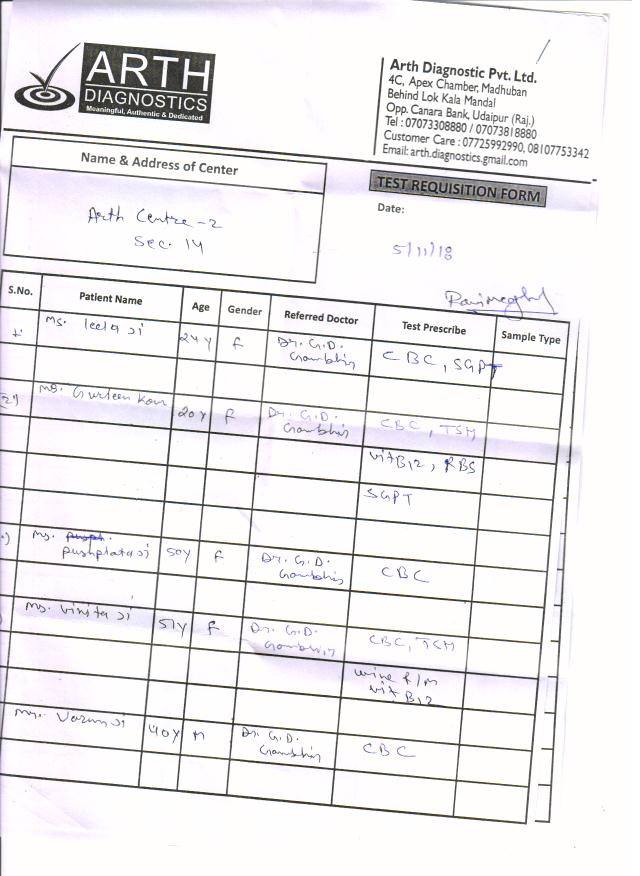 ARTH
DIAGNOSTICS
Meaningful, Authentic & Dedicated
Arth Diagnostic Pvt. Ltd.
4C, Apex Chamber, Madhuban
Behind Lok Kala Mandal
Opp. Canara Bank, Udaipur (Raj.)
Tel : 07073308880 / 07073818880
Customer Care : 07725992990, 08107753342
Email: arth.diagnostics.gmail.com
Name & Address of Center
Arth Centre-2
Sec. 14
TEST REQUISITION FORM
Date:
5/11/18
S.No. Patient Name Age Gender Referred Doctor Test Prescribe Sample Type
Ms. leela ji 24Y F Dr. G.D. CBC, SGPT
Gambhir
2) Ms. Gurleen Kour 20Y F Dr. G.D. CBC, TSH
Gambhir
vit B12, RBS
SGPT
Ms.
pushplata ji 50Y F Dr. G.D. CBC
Gambhir
Ms. Vinita ji 51Y F Dr. G.D. CBC, TSH
Gambhir
urine R/M
vit B12
Varun ji 40Y M Dr. G.D. CBC
Gambhir